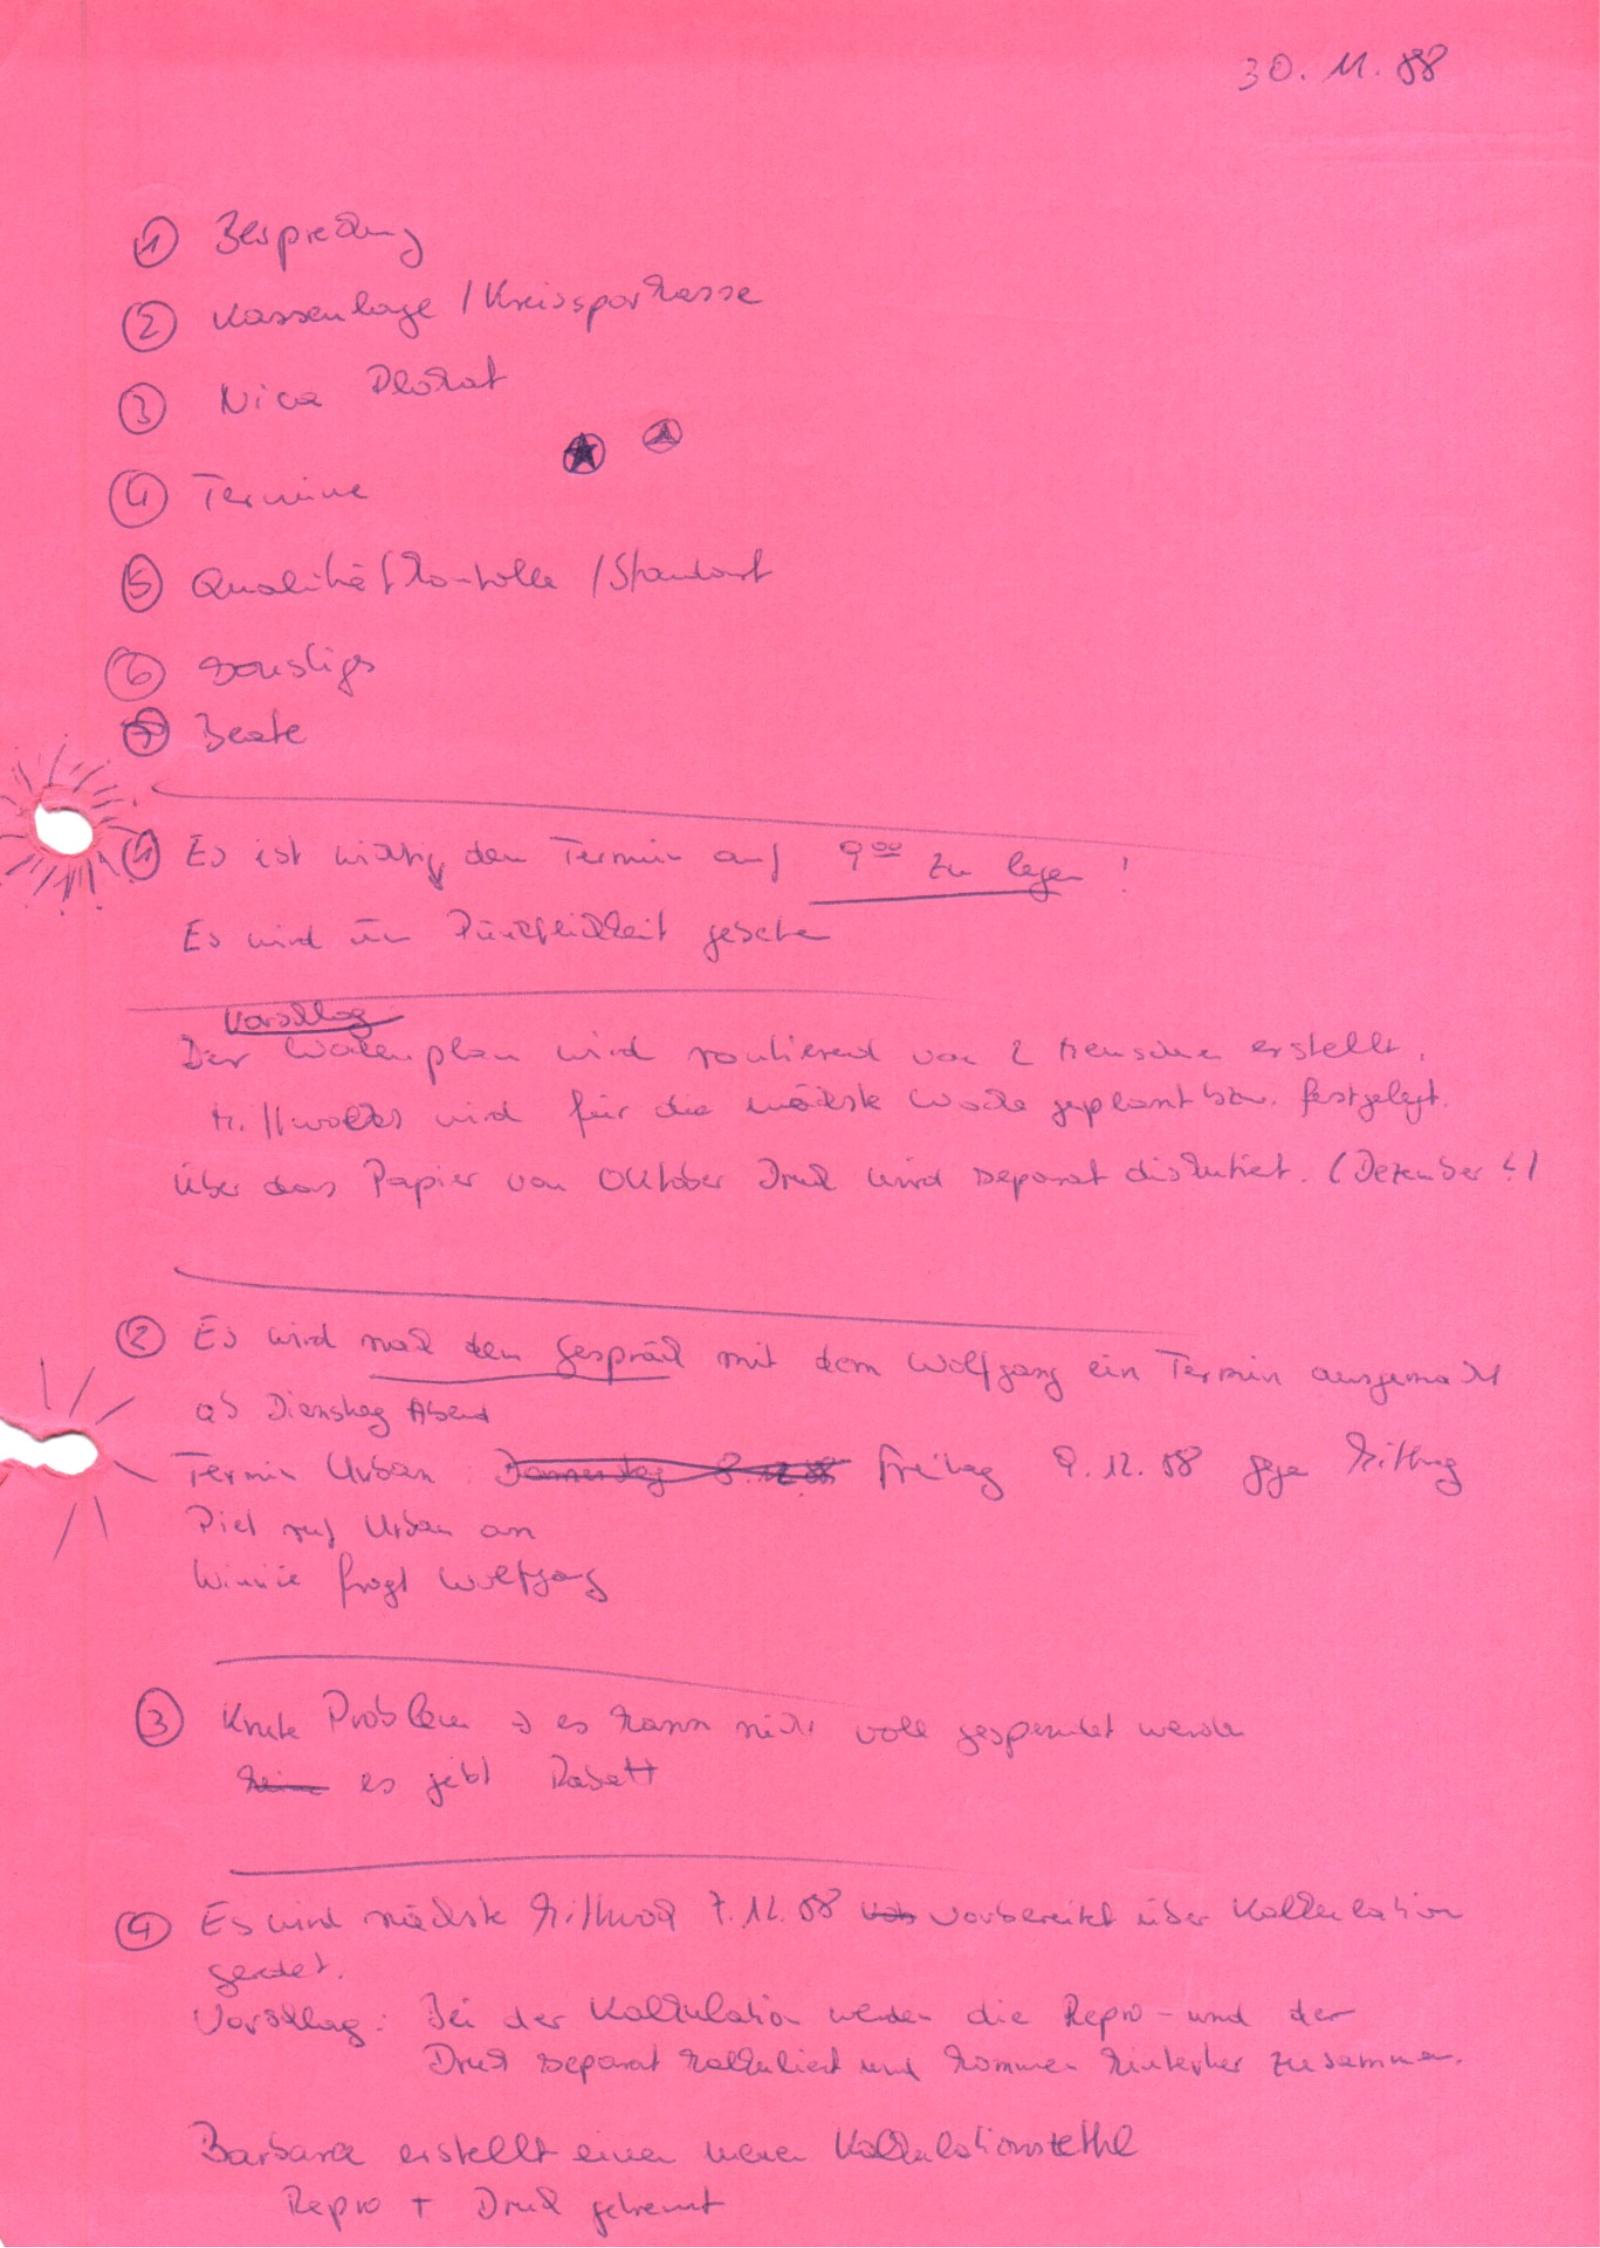 30.11.88
① Besprechung
② Kassenlage / Kreissparkasse
③ Nica Plakat
④ Termine
⑤ Qualitätskontrolle / Standort
⑥ Sonstiges
⑦ Beate
① Es ist wichtig den Termin auf 9⁰⁰ zu legen!
Es wird um Pünktlichkeit gebeten
Vorschlag
Der Wochenplan wird routierend von 2 Menschen erstellt.
Mittwochs wird für die nächste Woche geplant bzw. festgelegt.
Über das Papier von Oktober Druck wird separat diskutiert. (Dezember !)
② Es wird nach dem Gespräch mit dem Wolfgang ein Termin ausgemacht
ab Dienstag Abend
Termin Urban: Donnerstag 8.12.88 Freitag 9.12.88 gegen Mittag
Piel ruft Urban an
Winnie fragt Wolfgang
③ Probleme → es kann nicht voll gespendet werden
keine es gibt Rabatt
④ Es wird nächste Mittwoch 7.12.88 vorbereitet über Kalkulation
geredet.
Vorschlag: Bei der Kalkulation werden die Repro- und der
Druck separat kalkuliert und kommen hinterher zusammen.
Barbara erstellt einen neuen Kalkulationszettel
Repro + Druck getrennt